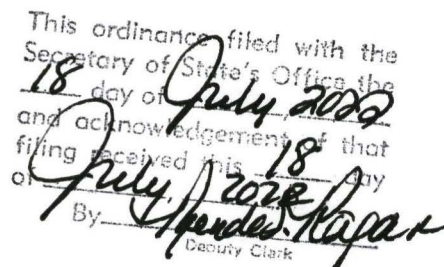 This ordinance filed with the
Secretary of State's Office the
18 day of July 2022
and acknowledgement of that
filing received this 18 day
of July, 2022
By
Deputy Clerk